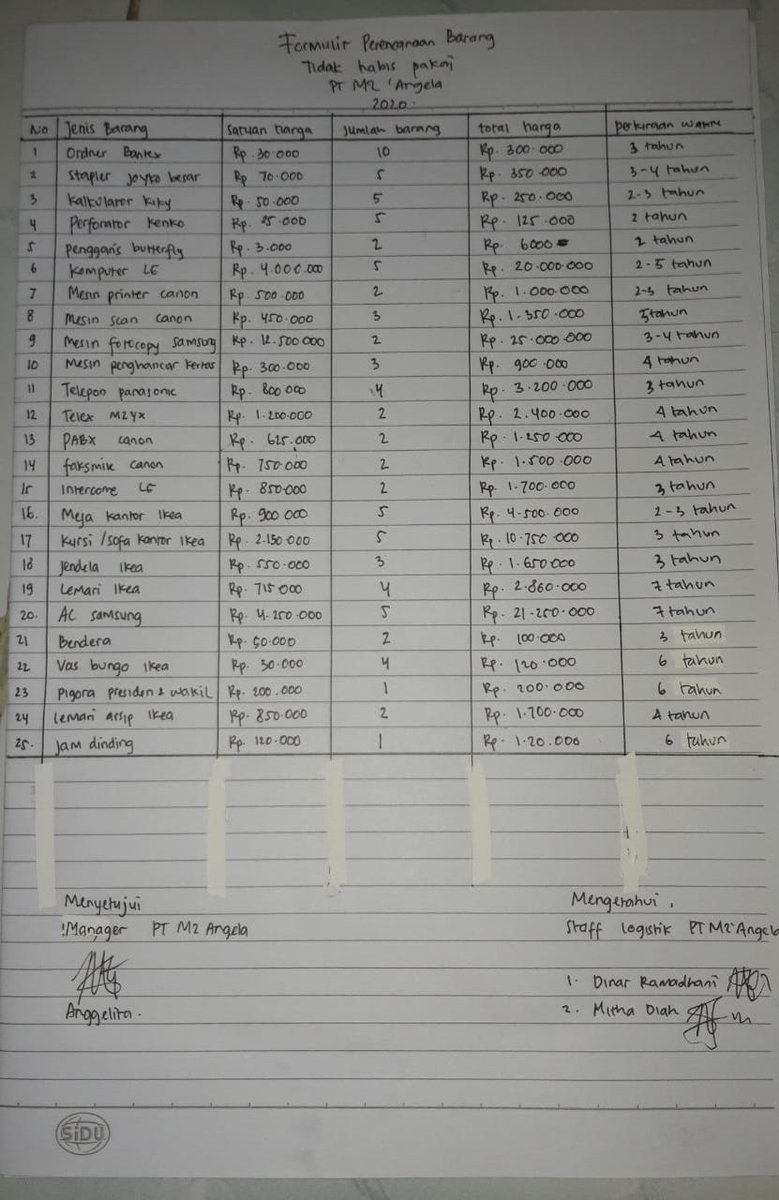 Formulir Perencanaan Barang
Tidak habis pakai
PT M2 'Angela
2020.
No Jenis Barang satuan harga jumlah barang total harga perkiraan waktu
1 Ordner Bantex Rp. 30.000 10 Rp. 300.000 3 tahun
2 Stapler joyko besar Rp 70.000 5 Rp. 350.000 3-4 tahun
3 kalkulator kiky Rp. 50.000 5 Rp. 250.000 2-3 tahun
4 Perforator kenko Rp. 25.000 5 Rp. 125.000 2 tahun
5 penggaris butterfly Rp. 3.000 2 Rp. 6000 2 tahun
6 komputer LG Rp. 4.000.000 5 Rp. 20.000.000 2-5 tahun
7 Mesin printer canon Rp. 500.000 2 Rp. 1.000.000 2-3 tahun
8 Mesin scan canon Rp. 450.000 3 Rp. 1.350.000 3 tahun
9 Mesin fotocopy samsung Rp. 12.500.000 2 Rp. 25.000.000 3-4 tahun
10 Mesin penghancar kertas Rp. 300.000 3 Rp. 900.000 4 tahun
11 Telepon panasonic Rp. 800.000 4 Rp. 3.200.000 3 tahun
12 Telex M2yx Rp. 1.200.000 2 Rp. 2.400.000 4 tahun
13 PABX canon Rp. 625.000 2 Rp. 1.250.000 4 tahun
14 faksmile canon Rp. 750.000 2 Rp. 1.500.000 4 tahun
15 Intercome LG Rp. 850.000 2 Rp. 1.700.000 3 tahun
16. Meja kantor Ikea Rp. 900.000 5 Rp. 4.500.000 2-3 tahun
17 kursi /sofa kantor Ikea Rp. 2.150.000 5 Rp. 10.750.000 3 tahun
18 Jendela Ikea Rp. 550.000 3 Rp. 1.650.000 3 tahun
19 Lemari Ikea Rp. 715.000 4 Rp. 2.860.000 7 tahun
20. AC samsung Rp. 4.250.000 5 Rp. 21.250.000 7 tahun
21 Bendera Rp. 50.000 2 Rp. 100.000 3 tahun
22 Vas bungo Ikea Rp. 30.000 4 Rp. 120.000 6 tahun
23 Pigora presiden & wakil Rp. 200.000 1 Rp. 200.000 6 tahun
24 lemari arsip Ikea Rp. 850.000 2 Rp. 1.700.000 4 tahun
25. Jam dinding Rp. 120.000 1 Rp. 1.20.000 6 tahun
Menyetujui Mengetahui,
Manager PT M2 Angela Staff Logistik PT M2'Angela
1. Dinar Ramadhani
Anggelita. 2. Mitha Diah
SiDU